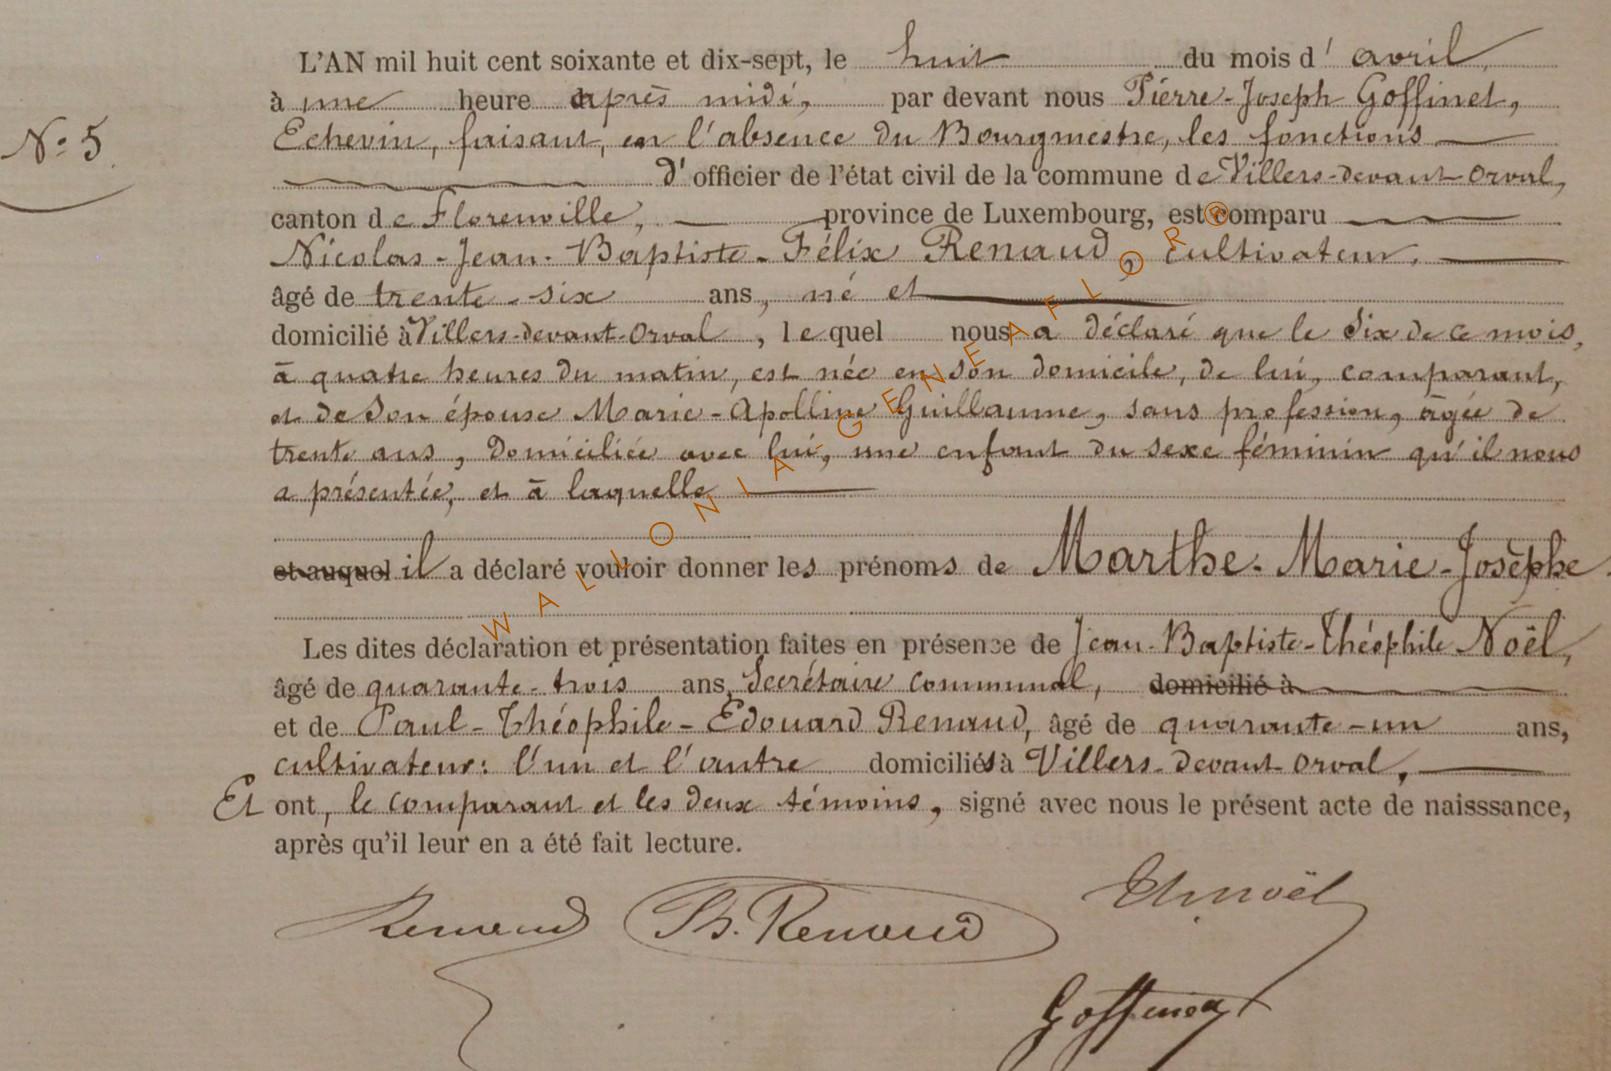 L'AN mil huit cent soixante et dix-sept, le huit du mois d' avril,
à une heure après midi, par devant nous Pierre-Joseph Goffinet,
N.o 5
Echevin, faisant, en l'absence du Bourgmestre, les fonctions
d' officier de l'état civil de la commune de Villers-devant-Orval,
canton de Florenville, province de Luxembourg, est comparu
Nicolas-Jean-Baptiste-Félix Renaud, cultivateur,
âgé de trente-six ans, né et
domicilié à Villers-devant-Orval, lequel nous a déclaré que le six de ce mois,
à quatre heures du matin, est née en son domicile, de lui, comparant,
et de son épouse Marie-Apolline Guillaume, sans profession, âgée de
trente ans, domiciliée avec lui, une enfant du sexe féminin qu'il nous
a présentée, et à laquelle
et auquel il a déclaré vouloir donner les prénoms de Marthe-Marie-Josèphe.
Les dites déclaration et présentation faites en présence de Jean-Baptiste-Théophile Noël,
âgé de quarante-trois ans, Secrétaire communal, domicilié à
et de Paul-Théophile-Edouard Renaud, âgé de quarante-un ans,
cultivateur: l'un et l'autre domiciliés à Villers-devant-Orval,
Et ont, le comparant et les deux témoins, signé avec nous le présent acte de naisssance,
après qu'il leur en a été fait lecture.
Renaud Th. Renaud Th. Noël
Goffinet
WALLONIA-GENEAFLOR®